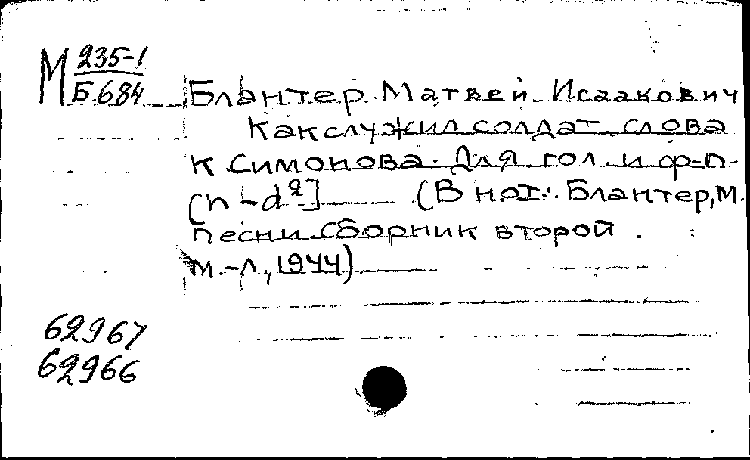 М 235-1
Б 684
Блантер Матвей Исаакович
Как служил солдат слова
К Симонова. Для гол. и ф-п.
[h-d²] (В нот: Блантер, М.
Песни сборник второй.
М.-Л., 1944)
62967
62966